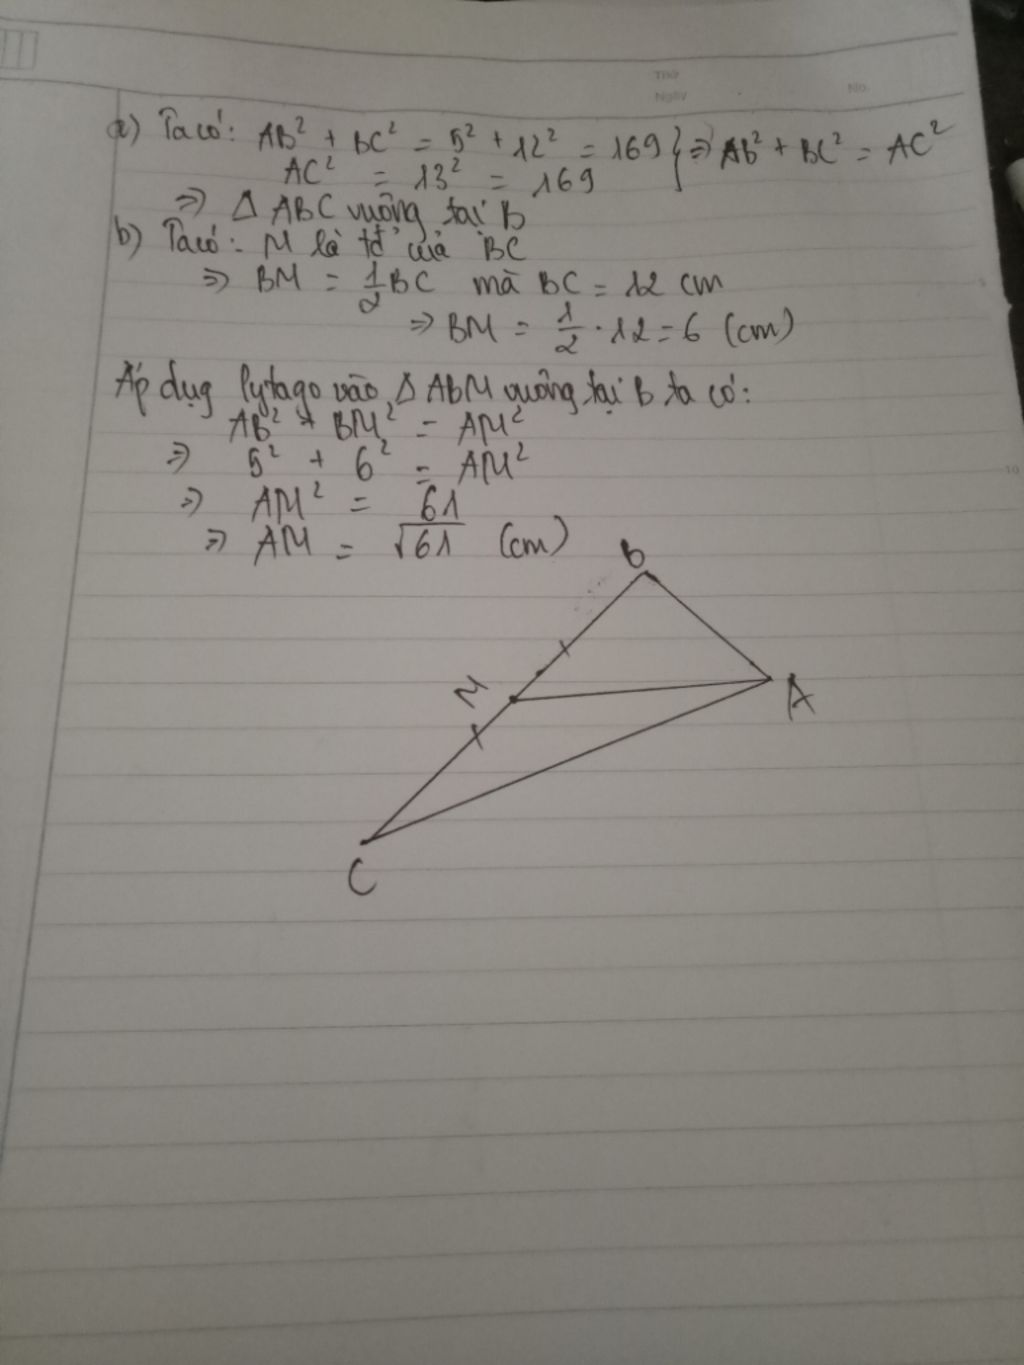 Thứ
Ngày
No.
a) Ta có: AB² + BC² = 5² + 12² = 169 } => AB² + BC² = AC²
AC² = 13² = 169
=> Δ ABC vuông tại B
b) Ta có: M là tđ' của BC
=> BM = 1/2 BC mà BC = 12 cm
=> BM = 1/2 . 12 = 6 (cm)
Áp dụg Pytago vào Δ ABM vuông tại B ta có:
AB² + BM² = AM²
=> 5² + 6² = AM²
=> AM² = 61
=> AM = √61 (cm)
B
M
A
C
10